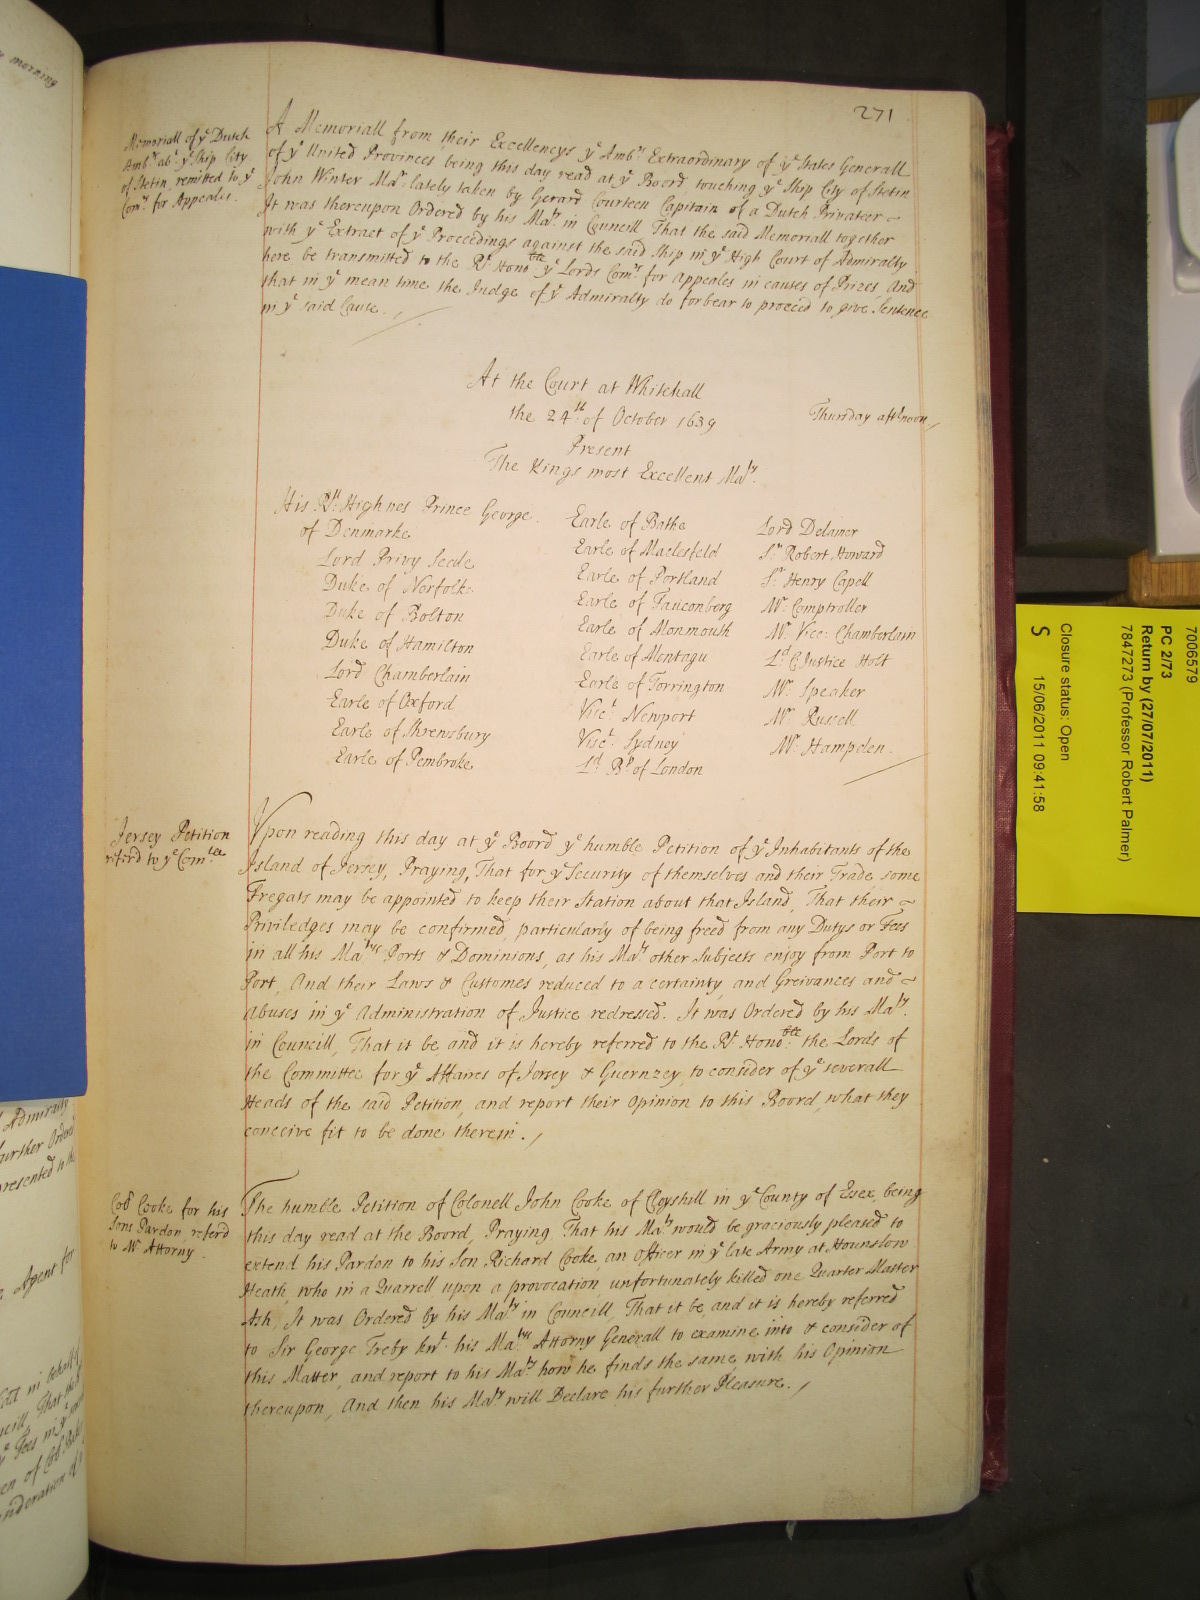 morning
271
Memoriall of yͤ Dutch
Ambʳˢ abᵗ yͤ Ship City
of Stetin, remitted to yͤ
Comʳˢ for Appeales.
A Memoriall from their Excellencys yͤ Ambʳˢ Extraordinary of yͤ States Generall
of yͤ United Provinces being this day read at yͤ Board touching yͤ Ship City of Stetin
John Winter Maʳ lately taken by Gerard Courteen Capitain of a Dutch Privateer
It was thereupon Ordered by his Maᵗʸ in Councill That the said Memoriall together
with yͤ Extract of yͤ Proceedings against the said Ship in yͤ High Court of Admiralty
here be transmitted to the Rᵗ Honoᵇˡᵉ yͤ Lords Comʳˢ for Appeales in causes of Prizes And
that in yͤ mean time the Judge of yͤ Admiralty do forbear to proceed to give Sentence
in yͤ said Cause.
At the Court at Whitehall
the 24ᵗʰ of October 1689
Thursday aftʳnoon
Present
The Kings most Excellent Maᵗʸ.
His Rˡˡ Highnes Prince George
of Denmarke
Lord Privy Seale
Duke of Norfolke
Duke of Bolton
Duke of Hamilton
Lord Chamberlain
Earle of Oxford
Earle of Shrewsbury
Earle of Pembroke
Earle of Bathe
Earle of Maclesfeld
Earle of Portland
Earle of Fauconberg
Earle of Monmouth
Earle of Montagu
Earle of Torrington
Viscᵗ Newport
Viscᵗ Sydney
Lᵈ Bᵖ of London
Lord Delamer
Sʳ Robert Howard
Sʳ Henry Capell
Mʳ Comptroller
Mʳ Vice: Chamberlain
Lᵈ C Justice Holt
Mʳ Speaker
Mʳ Russell
Mʳ Hampden.
Jersey Petition
referd to yͤ Comᵗᵉᵉ
Vpon reading this day at yͤ Board yͤ humble Petition of yͤ Inhabitants of the
Island of Jersey, Praying, That for yͤ Security of themselves and their Trade some
Fregats may be appointed to keep their Station about that Island, That their
Priviledges may be confirmed, particularly of being freed from any Dutys or Fees
in all his Maᵗʸᵉˢ Ports & Dominions, as his Maᵗˢ other Subjects enjoy from Port to
Port, And their Laws & Customes reduced to a certainty, and Greivances and
Abuses in yͤ Administration of Justice redressed. It was Ordered by his Maᵗʸ.
in Councill, That it be and it is hereby referred to the Rᵗ Honoᵇˡᵉ the Lords of
the Committee for yͤ Affaires of Jersey & Guernzey, to consider of yͤ severall
Heads of the said Petition, and report their Opinion to this Board, what they
conceive fit to be done therein.
Coˡˡ Cooke for his
Sons Pardon, referd
to Mʳ Attorny.
The humble Petition of Colonell John Cooke of in yͤ County of Essex, being
this day read at the Board, Praying That his Maᵗʸ would be graciously pleased to
extend his Pardon to his Son Richard Cooke, an Officer in yͤ late Army at Hounslow
Heath, who in a Quarrell upon a provocation unfortunately killed one Quarter Master
Ash, It was Ordered by his Maᵗʸ in Councill, That it be, and it is hereby referred
to Sir George Treby knᵗ his Maᵗʸᵉˢ Attorny Generall to examine into & consider of
this Matter, and report to his Maᵗʸ how he finds the same, with his Opinion
thereupon, And then his Maᵗʸ will Declare his further Pleasure.
Admiralty
further Order
presented to the
Agent for
in behalf
That the
yͤ Fees in yͤ
7006579
PC 2/73
Return by (27/07/2011)
7847273 (Professor Robert Palmer)
Closure status: Open
S 15/06/2011 09:41:58